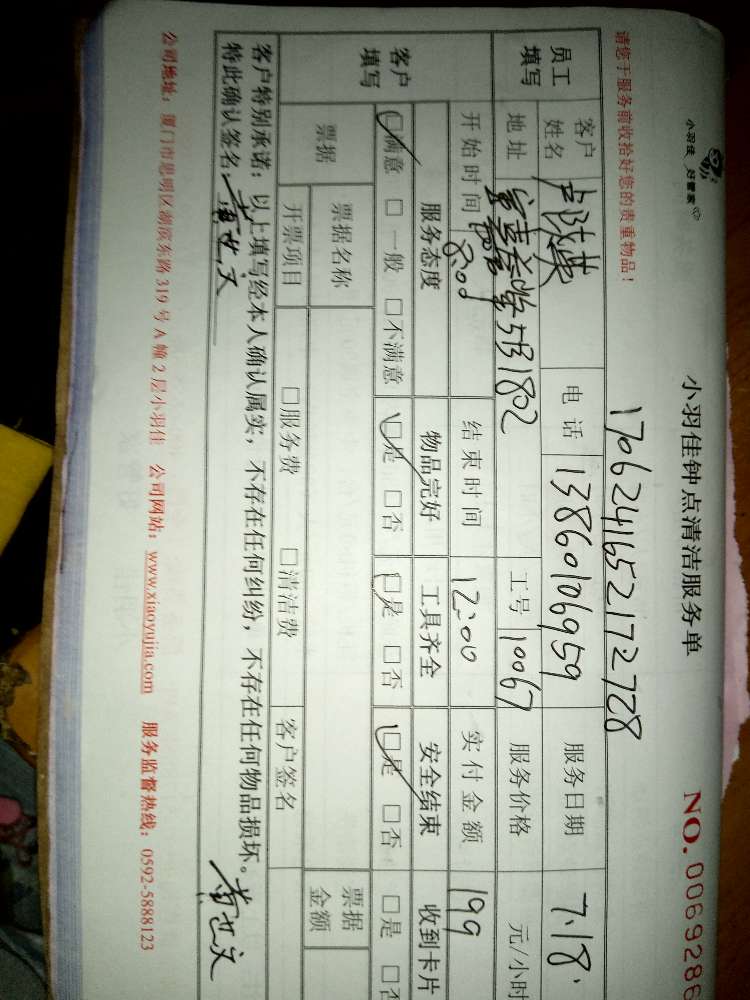 小羽佳 好管家
小羽佳钟点清洁服务单
NO. 0069286
请您于服务前收拾好您的贵重物品！
17062416521 72728
员工填写
客户姓名
电话 13860106959
服务日期 7.18
地址 5B1802
工号 10067
服务价格 元/小时
开始时间 8:00
结束时间 12:00
实付金额 199
客户填写
服务态度 物品完好 工具齐全 安全结束 收到卡片
☑满意 □一般 □不满意 ☑是 □否 ☑是 □否 ☑是 □否 □是 □否
票据
票据名称
票据金额
开票项目 □服务费 □清洁费 客户签名
客户特别承诺：以上填写经本人确认属实，不存在任何纠纷，不存在任何物品损坏。
特此确认签名：
公司地址：厦门市思明区湖滨东路 319 号 A 幢 2 层小羽佳 公司网站：www.xiaoyujia.com 服务监督热线：0592-5888123